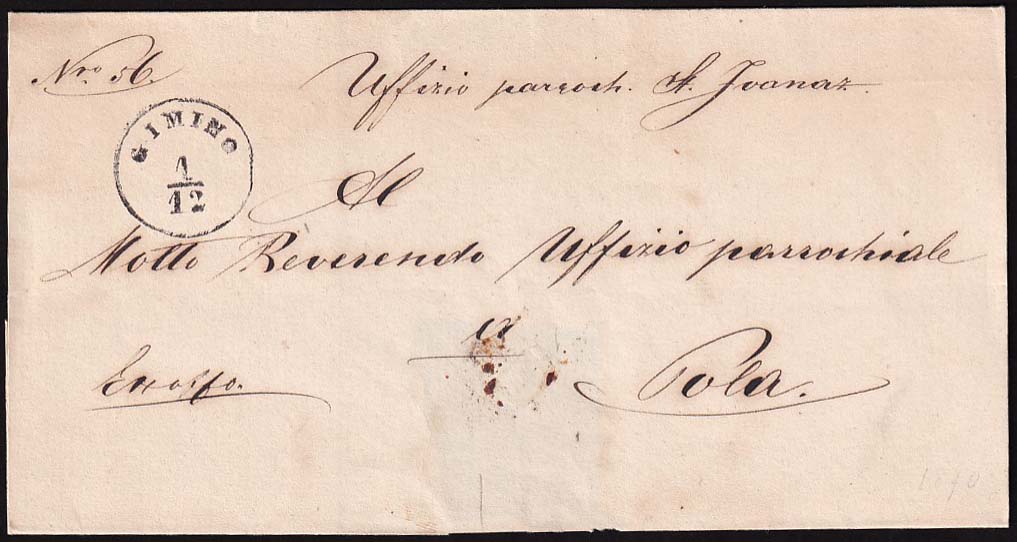 Nro 56.
Uffizio parroch. St. Ivanaz.
GIMINO
1
12
Al
Molto Reverendo Uffizio parrochiale
a
Pola.